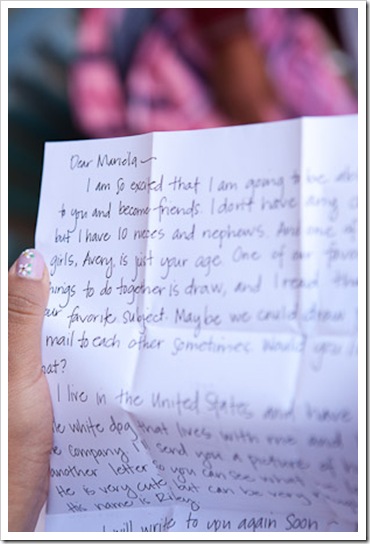 Dear Mariela ~
I am so excited that I am going to be
to you and become friends. I don't have any
but I have 10 neices and nephews. And one of
girls, Avery, is just your age. One of our
things to do together is draw, and I read
our favorite subject. Maybe we could draw
mail to each other sometimes. Would you
hat?
I live in the United States and have
le white dog that lives with me and
e company. I'll send you a picture of
another letter so you can see what
He is very cute, but can be very
His name is Riley.
I will write to you again soon ~